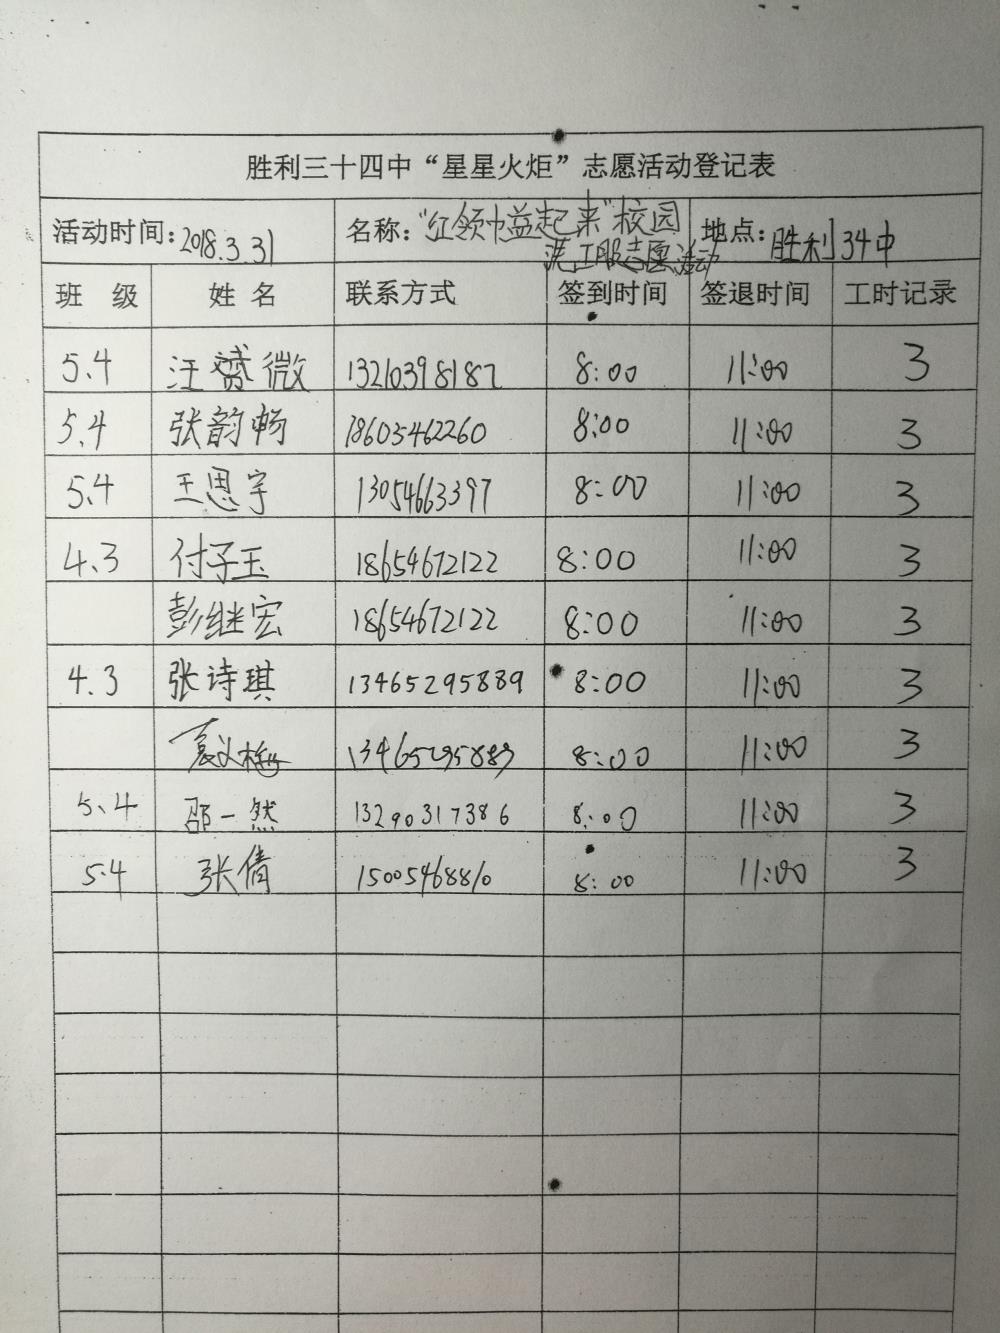 胜利三十四中“星星火炬”志愿活动登记表
活动时间:2018.3.31 名称:“红领巾益起来”校园洗工服志愿活动 地点:胜利34中
班 级 姓 名 联系方式 签到时间 签退时间 工时记录
5.4 汪赟微 13210398187 8:00 11:00 3
5.4 张韵畅 18605462260 8:00 11:00 3
5.4 王思宇 13054663397 8:00 11:00 3
4.3 付子玉 18654672122 8:00 11:00 3
彭继宏 18654672122 8:00 11:00 3
4.3 张诗琪 13465295889 8:00 11:00 3
13465295889 8:00 11:00 3
5.4 邵一然 13290317386 8:00 11:00 3
5.4 张倩 15005468810 8:00 11:00 3